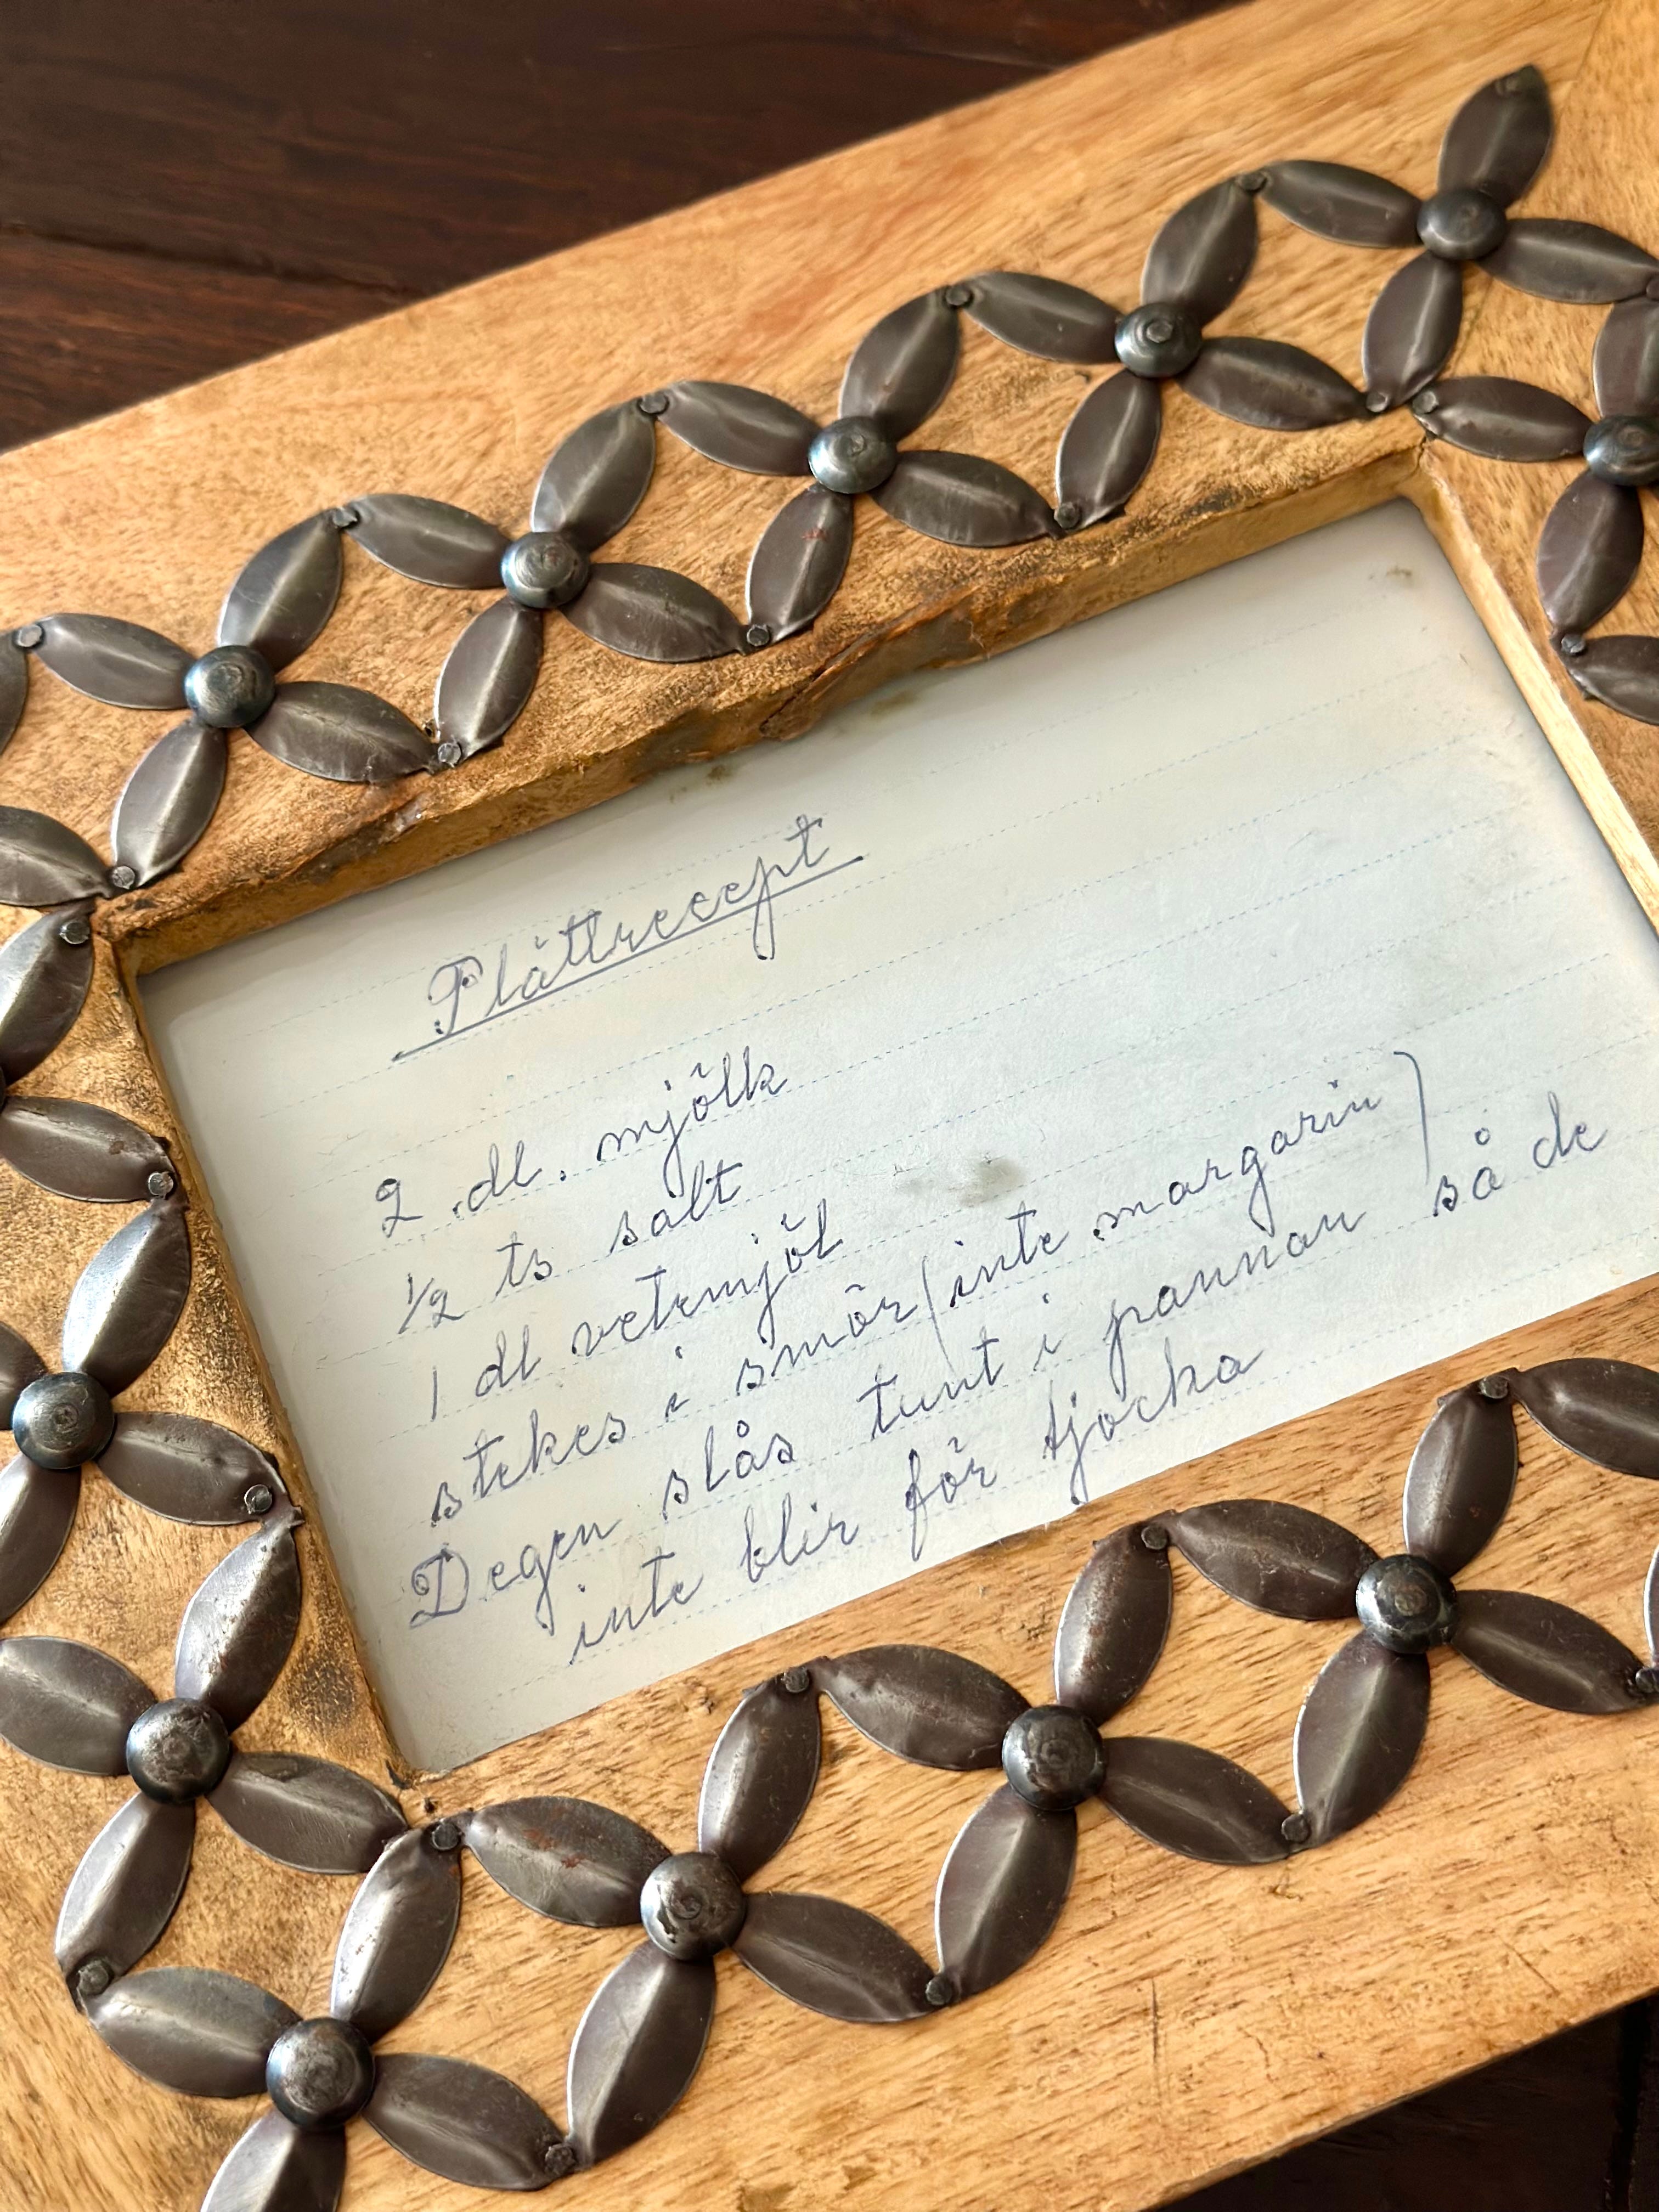 Plättrecept
2 dl. mjölk
1/2 ts salt
1 dl vetemjöl
stekes i smör (inte margarin)
Degen slås tunt i pannan så de
inte blir för tjocka